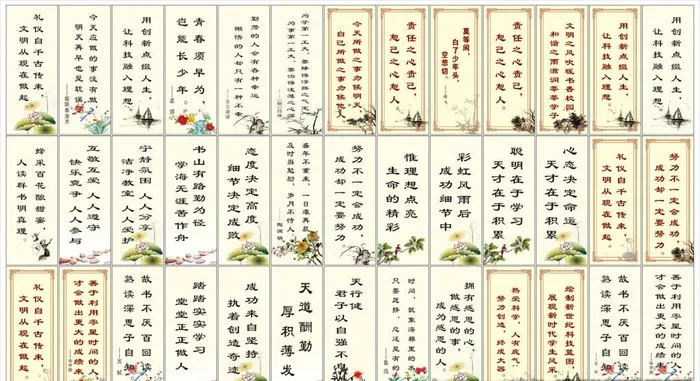 礼仪自千古传来，
文明从现在做起。
今天应做的事没有做，
明天再早也是耽误。
—裴斯泰洛齐
用创新点缀人生，
让科技融入理想。
青春须早为，
岂能长少年。
—孟郊
勤劳的人会有各种幸运，
懒惰的人却只有一种不幸。
为学第一工夫，要降得浮躁之气定。
今天所做之事勿候明天，
自己所做之事勿候他人。
责任之心责己，
恕己之心恕人。
莫等闲，
白了少年头，
空悲切。
责任之心责己，
恕己之心恕人。
文明之风吹暖书香校园，
和谐之雨滋润莘莘学子
用创新点缀人生，
让科技融入理想。
用创新点缀人生，
让科技融入理想。
蜂采百花酿甜蜜，
人读群书明真理。
互敬互爱 人人遵守
快乐竞争 人人参与
宁静氛围 人人分享
洁净教室 人人爱护
书山有路勤为径
学海无涯苦作舟
态度决定高度
细节决定成败
盛年不重来，一日难再晨。
及时当勉励，岁月不待人。
陶渊明
努力不一定会成功，
成功却一定要努力。
惟理想点亮
生命的精彩
彩虹风雨后
成功细节中
聪明在于学习
天才在于积累
心态决定命运
天才在于积累
礼仪自千古传来，
文明从现在做起。
努力不一定会成功，
成功却一定要努力。
礼仪自千古传来，
文明从现在做起。
善于利用零星时间的人，
才会做出更大的成绩来
故书不厌百回读
熟读深思子自知
踏踏实实学习
堂堂正正做人
成功来自坚持
执着创造奇迹
天道酬勤
厚积薄发
天行健
君子以自强不
时间，就象海绵里的水
只要愿挤，总还是有的
拥有感恩的心
做感恩的事
成为感恩的人
热爱科学，人有底气，
努力创造，终成大器
绘制新世纪科技蓝图
展现新时代学生风采
故书不厌百回读
熟读深思子自知
善于利用零星时间的人，
才会做出更大的成绩来